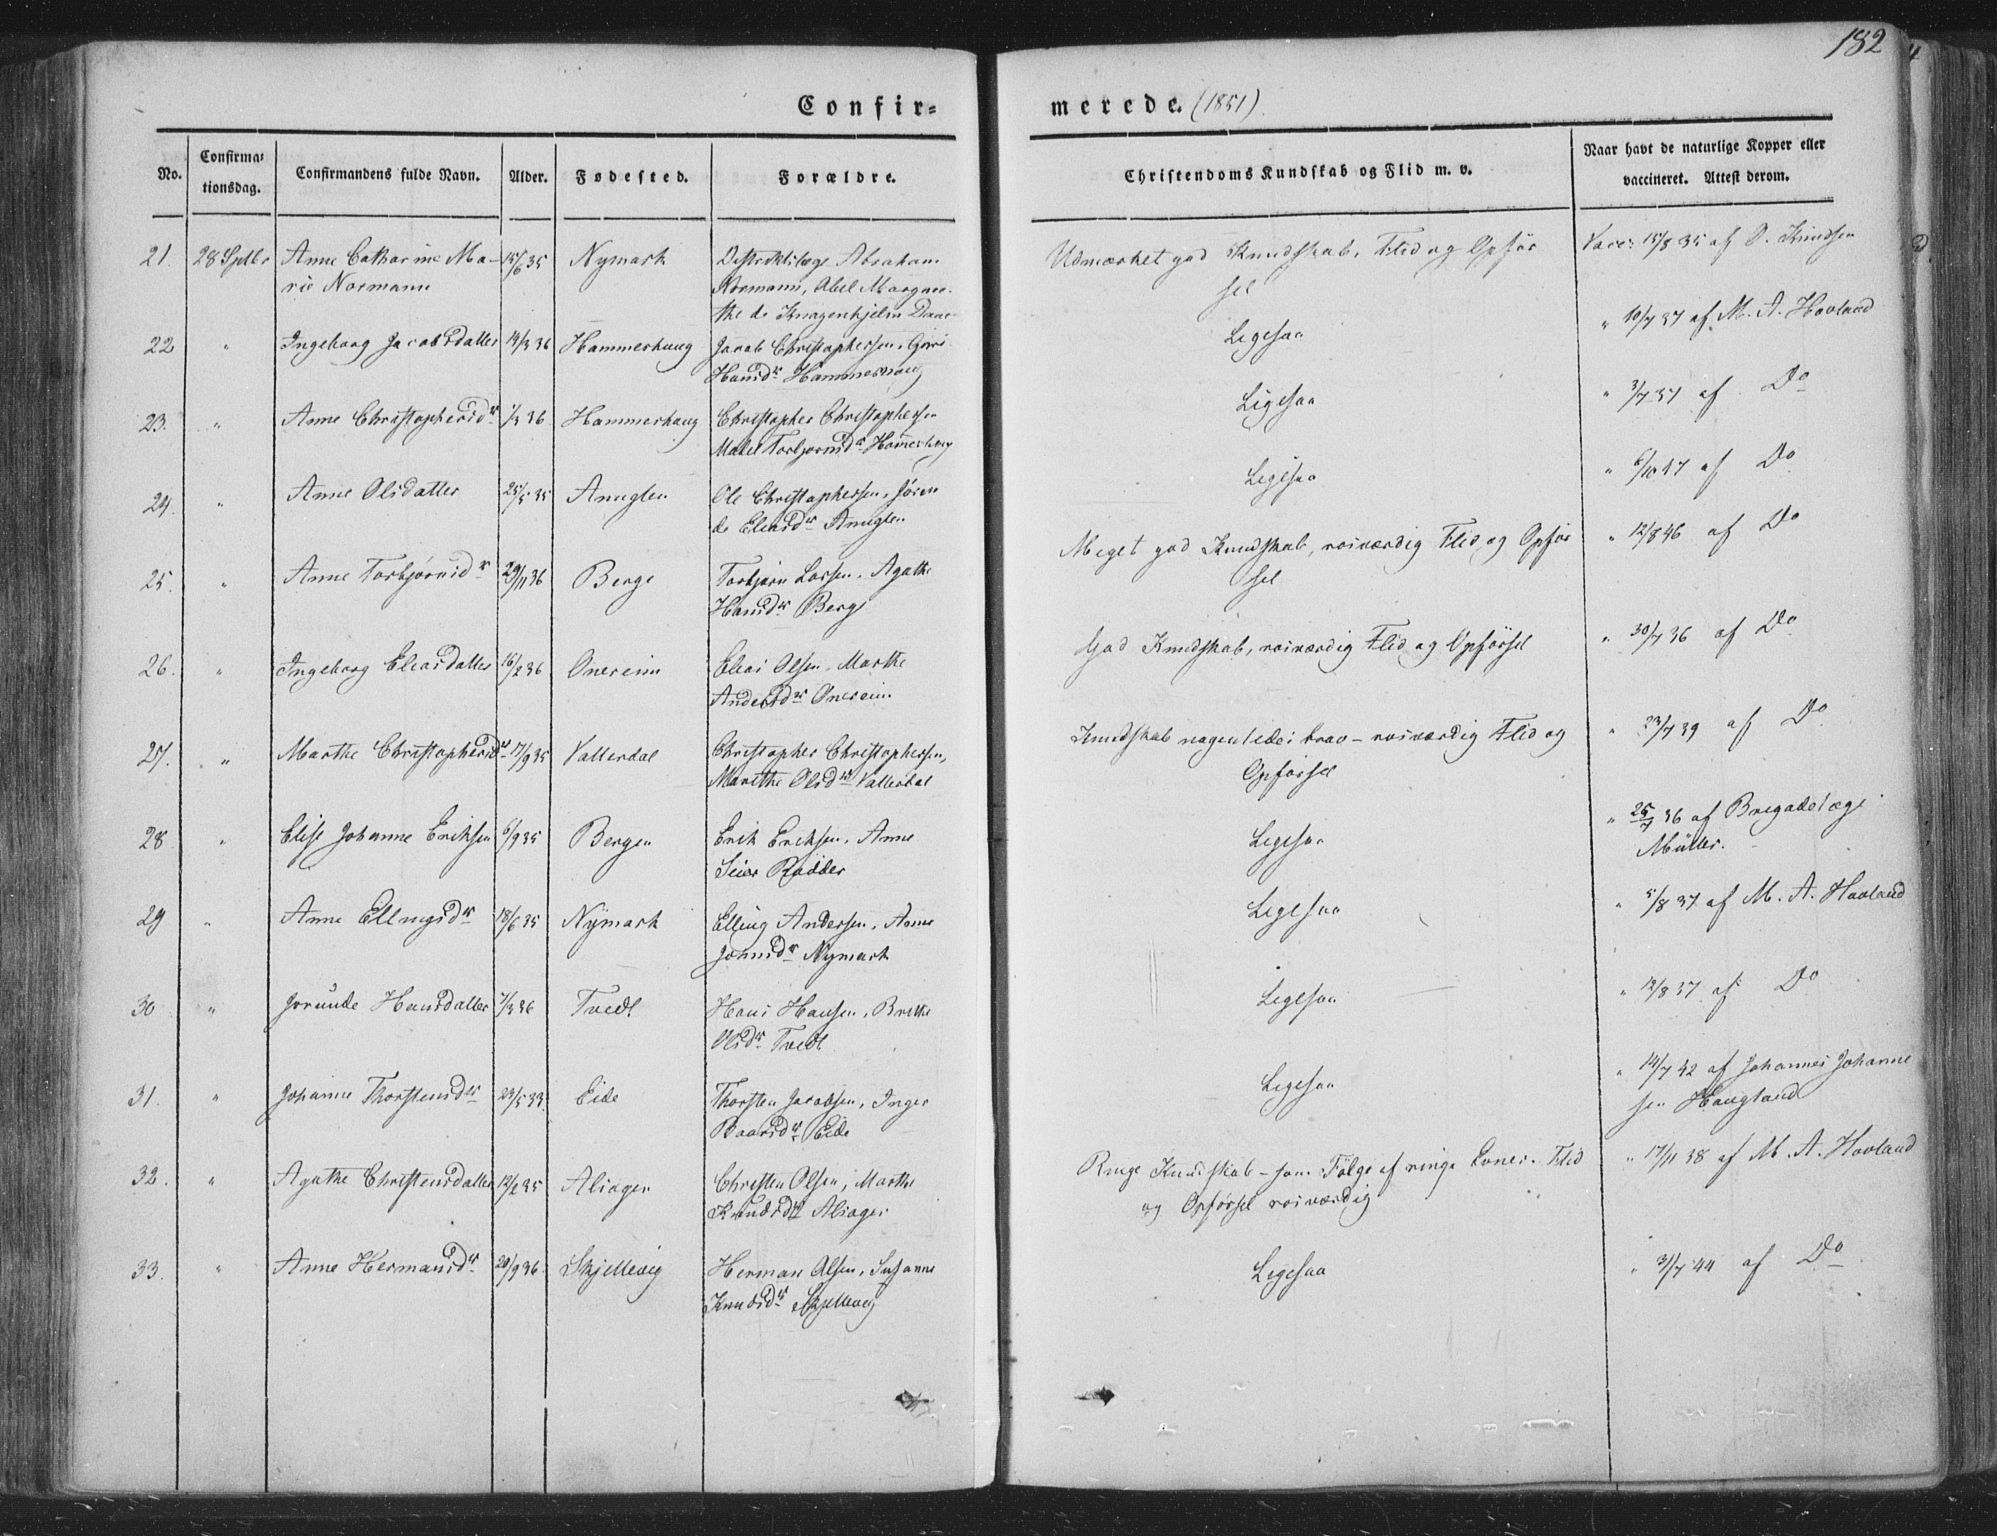 182
Confir-
merede. (1851)
No.
Confirma-
tionsdag.
Confirmandens fulde Navn.
Alder.
Fødested.
Forældre.
Christendoms Kundskab og Flid m. v.
Naar havt de naturlige Kopper eller
vaccineret. Attest derom.
21. 28 Septbr Anne Catharine Ma- 15/6 35 Nymark Distriktslæge Abraham
rie Normann Normann, Abel Margre-
the de Knagenhjelm Daae
Udmærket god Kundskab, Flid og Opfør
sel
Vacc: 15/8 35 af O. Knudsen
22 " Ingeborg Jacobsdatter 14/3 36 Hammerhaug Jacob Christophersen, Guri
Hansdr Hammerhaug
Ligesaa
" 10/7 37 af M. A. Hovland
23. " Anne Christophersdr 1/3 36 Hammerhaug Christopher Christophersen
Malel Torbjørnsdr Hamerhaug
Ligesaa
" 3/7 37 af Do
24. " Anne Olsdatter 25/5 35 Anuglen Ole Christophersen,
Eliasdr Anuglen
Ligesaa
" 6/10 47 af Do
25. " Anne Torbjørnsdr 29/11 36 Berge Torbjørn Larsen, Agathe
Hansdr Berge
Meget god Kundskab, rosværdig Flid og Opfør
sel
" 12/8 46 af Do
26. " Ingeborg Eliasdatter 16/2 36 Onereim Elias Olsen, Marthe
Andersdr Onereim
God Kundskab, rosværdig Flid og Opførsel
" 30/7 36 af Do
27. " Marthe Christophersdr 17/9 35 Vallerdal Christopher Christophersen,
Marithe Olsdr Vallerdal
Kundskab nogenledes brav - rosværdig Flid og
Opførsel
" 23/7 39 af Do
28 " Elise Johanne Eriksen 6/9 35 Bergen Erik Eriksen, Anne
Seier Rødder
Ligesaa
" 25/7 36 af Brigadelæge
Müller.
29 " Anne Ellingsdr 18/6 35 Nymark Elling Andersen, Anne
Johnsdr Nymark
Ligesaa
" 5/8 37 af M. A. Hovland
30 " Jorunde Hansdatter 7/3 36 Tvedt Hans Hansen, Brithe
Olsdr Tvedt
Ligesaa
" 12/8 37 af Do
31. " Johanne Thorstensdr 23/5 33. Eide Thorsten Jacobsen, Inger
Baarsdr Eide
Ligesaa
" 14/7 42 af Johannes Johanne
sen Haugland
32. " Agathe Christensdatter 12/2 35 Alsager Christen Olsen, Marthe
Knudsdr Alsager
Ringe Kundskab - som Følge af ringe Evner. Flid
og Opførsel rosværdig
" 17/11 38 af M. A. Hovland
33. " Anne Hermansdr 20/9 36. Skjellevig Herman Olsen, Susanne
Knudsdr Skjellevig
Ligesaa
" 31/7 44 af Do